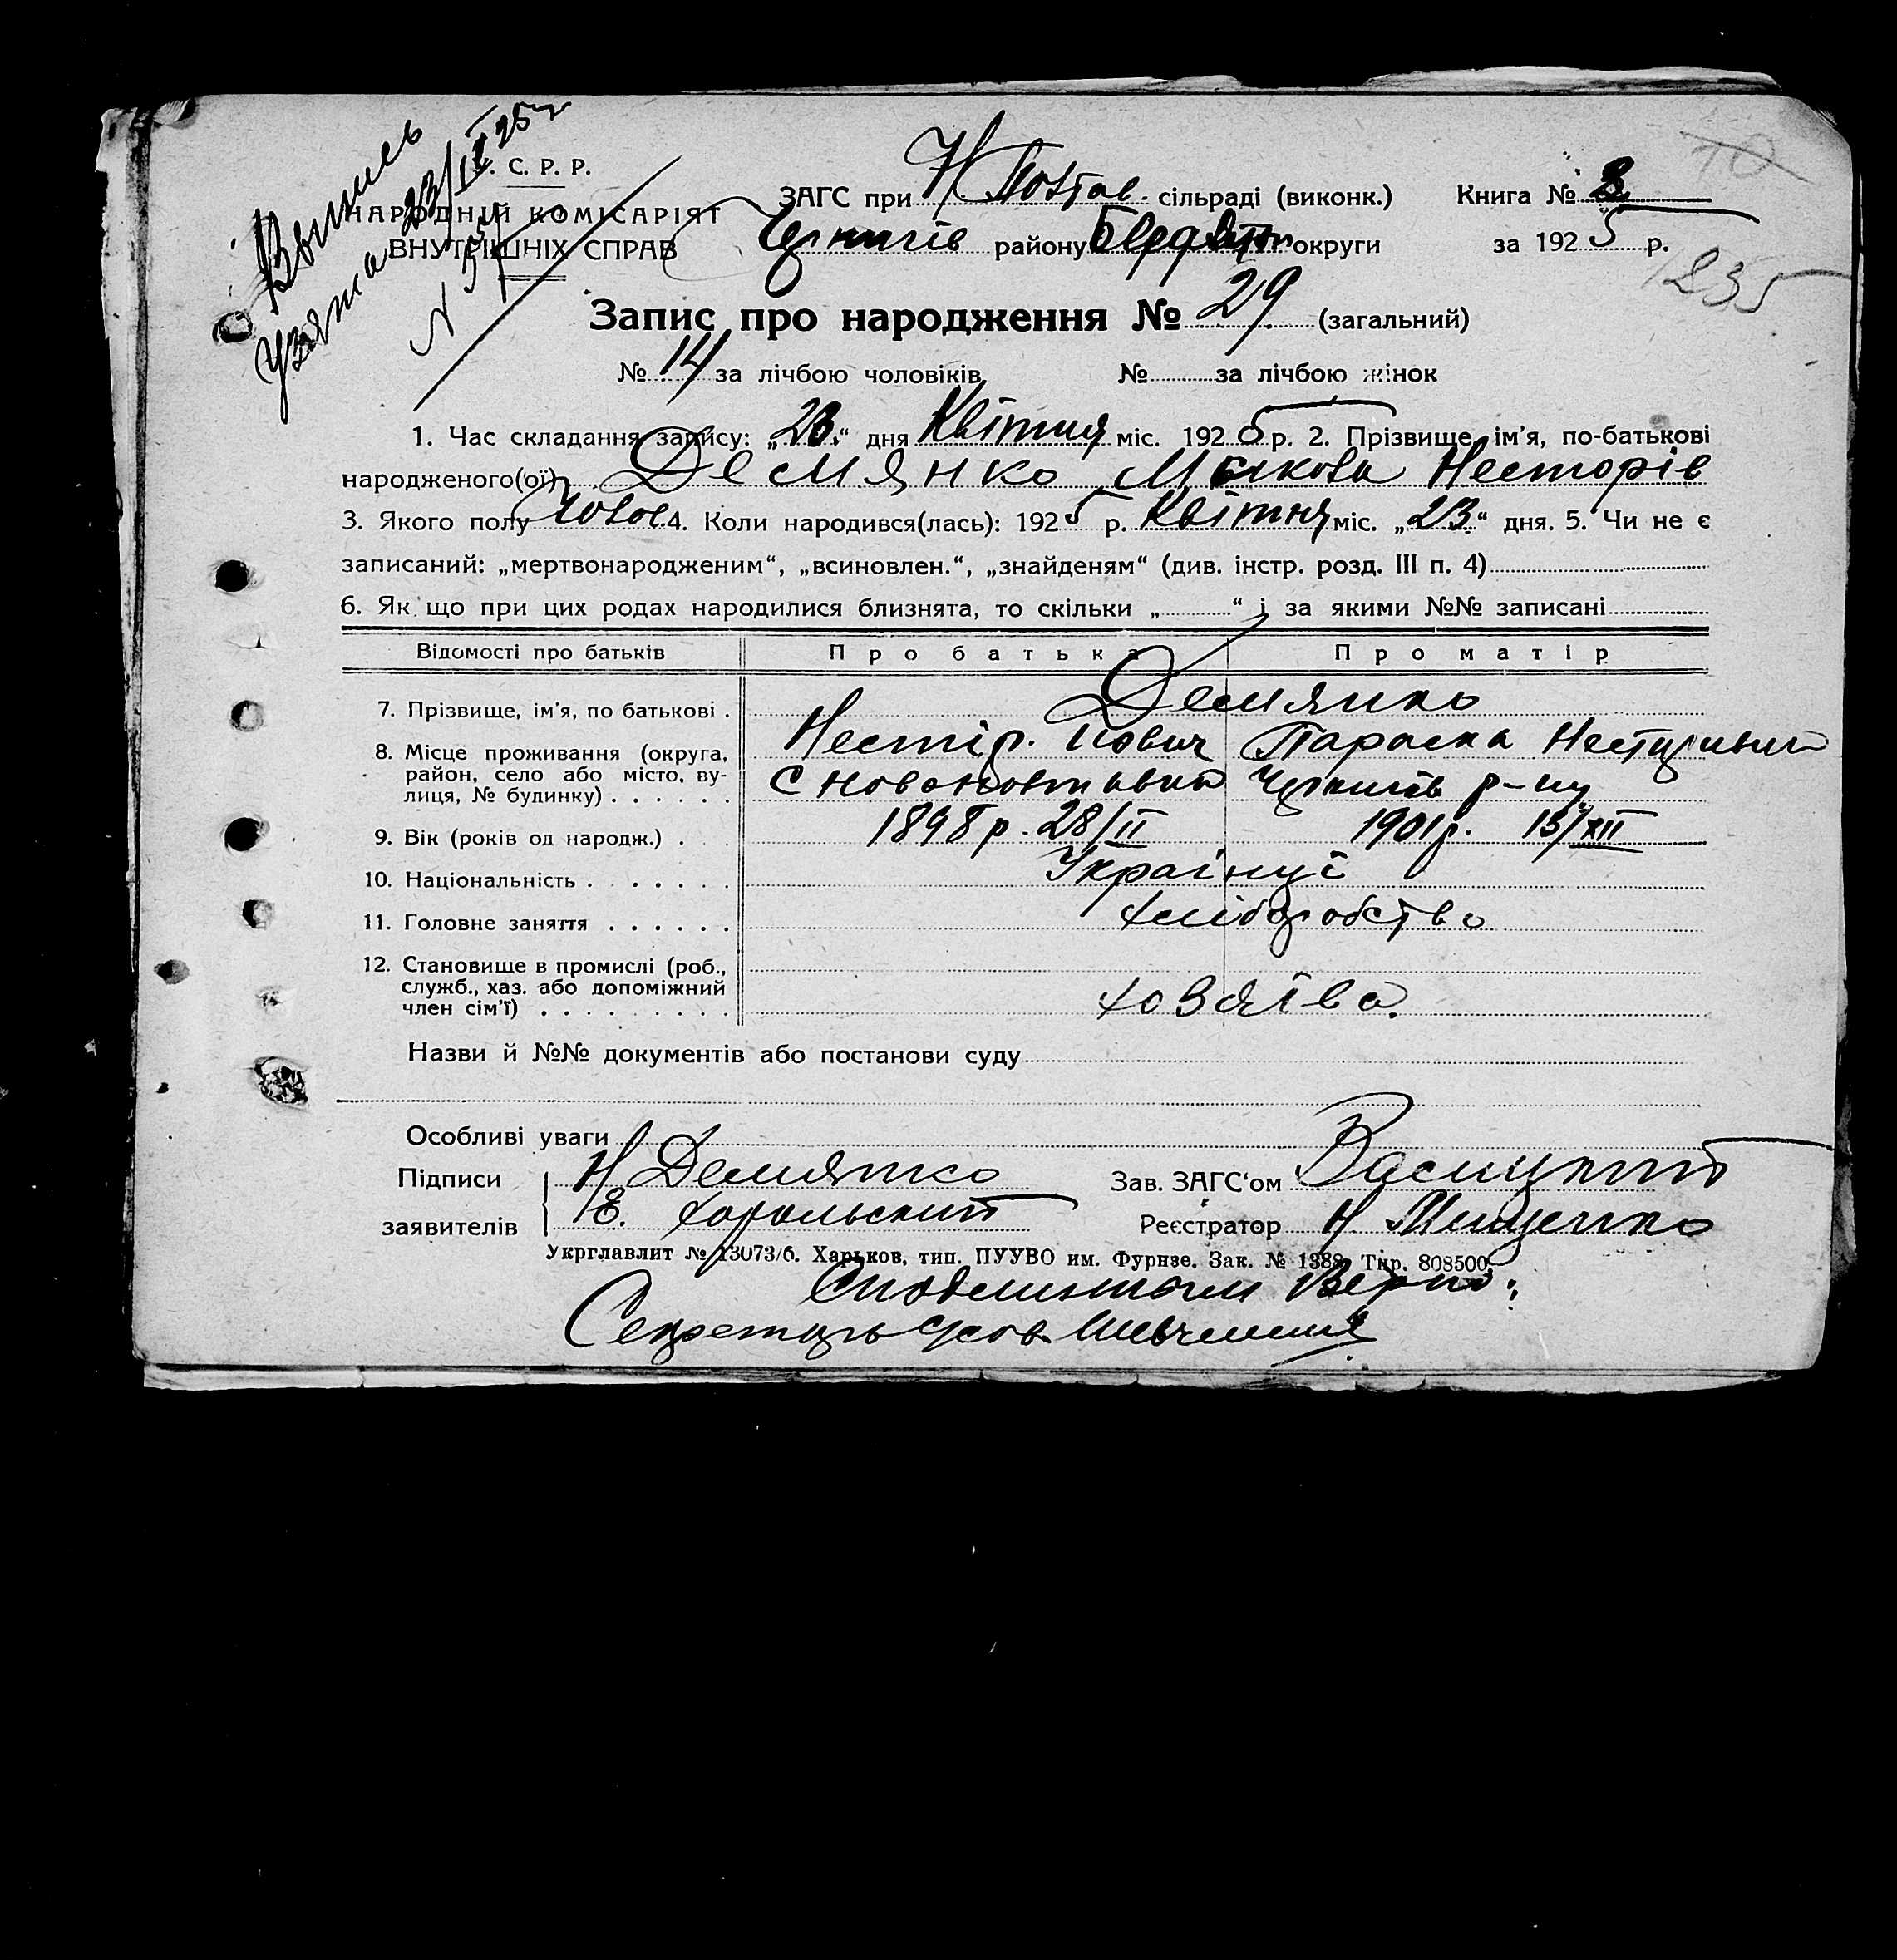 Выпись
узята 23/IV 25 г
N
10
С. Р. Р.
НАРОДНІЙ КОМІСАРІЯТ
ВНУТРІШНІХ СПРАВ
ЗАГС при Н Повтав. сільраді (виконк.) Книга № 2
Чернигів району Бердян округи за 1925 р.
235
Запис про народження № 29 (загальний)
№ 14 за лічбою чоловіків № за лічбою жінок
1. Час складання запису: „23“ дня Квітня міс. 1925 р. 2. Прізвище, ім'я, по-батькові
народженого(ої) Демянко Несторів
3. Якого полу чолов 4. Коли народився(лась): 1925 р. Квітня міс. „23“ дня. 5. Чи не є
записаний: „мертвонародженим“, „всиновлен.“, „знайденям“ (див. інстр. розд. III п. 4)
6. Як що при цих родах народилися близнята, то скільки „ “ і за якими №№ записані
Відомості про батьків Про батька Про матір
7. Прізвище, ім'я, по батькові . Демянко
Нестір. Йович Параска
8. Місце проживання (округа, район, село або місто, вулиця, № будинку) . . . . . . С Новополтавка Чернигів р-ну
9. Вік (років од народж.) . 1898 р. 28/II 1901 р. 13/XII
10. Національність . . . . . . Українці
11. Головне заняття . . . . . . хліборобство
12. Становище в промислі (роб., служб., хаз. або допоміжний член сім'ї) . . . . . . . . . хозяїва.
Назви й №№ документів або постанови суду
Особливі уваги
Підписи заявителів Н Демянко Зав. ЗАГС'ом
Е. Хорольский Реєстратор Н.
Укрглавлит № 13073/б. Харьков, тип. ПУУВО им. Фурнзе. Зак. № 1388. Тир. 808500.
Верно:
Секретарь